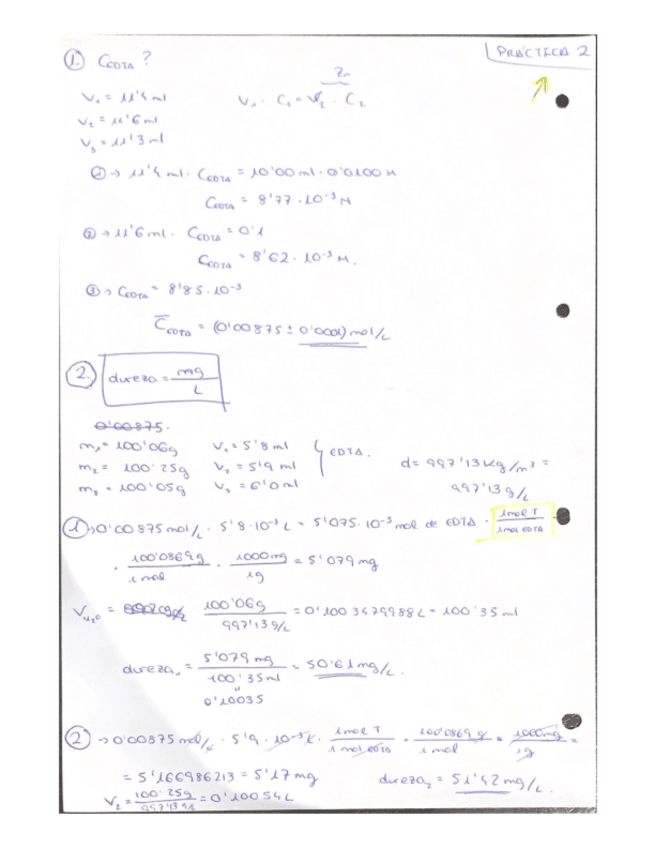 PRÁCTICA 2
1. C EDTA ?
Zn
V₁ = 11'4 ml
V₁ · C₁ = V₂ · C₂
V₂ = 11'6 ml
V₃ = 11'3 ml
① → 11'4 ml · C EDTA = 10'00 ml · 0'0100 M
C EDTA = 8'77 · 10⁻³ M
② → 11'6 ml · C EDTA = 0'1
C EDTA = 8'62 · 10⁻³ M.
③ → C EDTA = 8'85 · 10⁻³
C̅ EDTA = (0'00875 ± 0'0001) mol/L
2. dureza = mg/L
0'00875.
m₁ = 100'06g V₁ = 5'8 ml
m₂ = 100'25g V₂ = 5'9 ml EDTA.
m₃ = 100'05g V₃ = 6'0 ml
d = 997'13 Kg/m³ =
997'13 g/L
① → 0'00875 mol/L · 5'8 · 10⁻³ L = 5'075 · 10⁻⁵ mol de EDTA · 1 mol T / 1 mol EDTA
· 100'0869 g / 1 mol · 1000 mg / 1g = 5'079 mg
V H₂O = 100'06g / 997'13 g/L = 0'1003479988 L = 100'35 ml
dureza₁ = 5'079 mg / 100'35 ml = 50'61 mg/L.
"
0'10035
② → 0'00875 mol/L · 5'9 · 10⁻³ L · 1 mol T / 1 mol EDTA · 100'0869 g / 1 mol · 1000 mg / 1g =
= 5'166986213 = 5'17 mg dureza₂ = 51'42 mg/L.
V₂ = 100'25g / 997'13 g/L = 0'10054 L